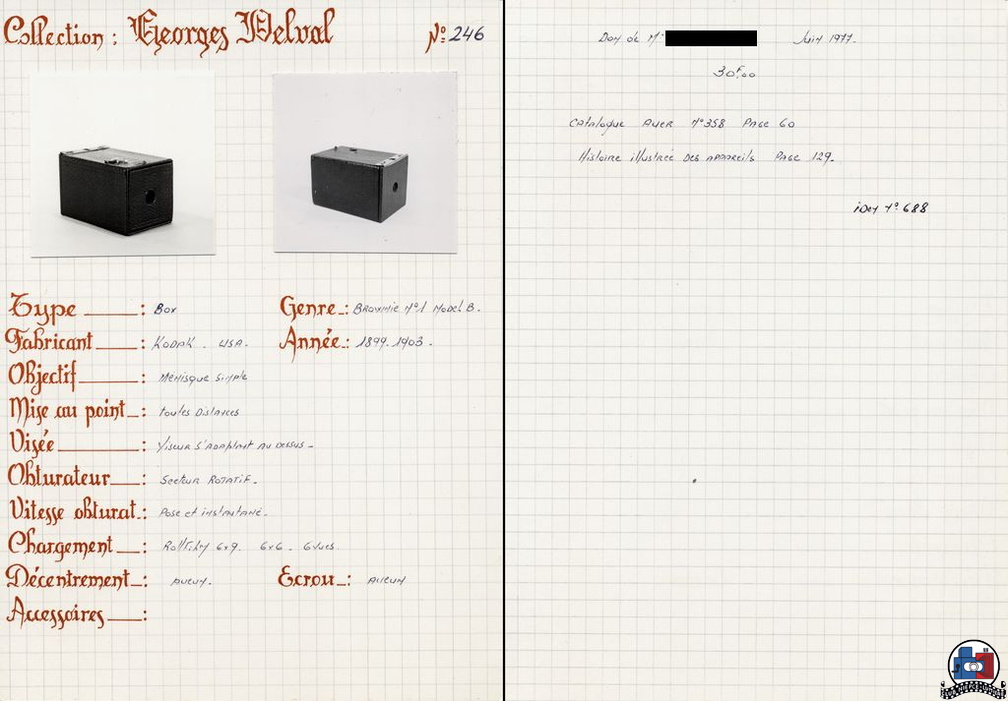 Collection : Georges Delval
N°: 246
Type : Box
Genre : Brownie N°1 Model B.
Fabricant : Kodak . USA.
Année : 1899.1903.
Objectif : Ménisque Simple
Mise au point : toutes Distances
Visée : Viseur s'adaptant au dessus -
Obturateur : Secteur Rotatif.
Vitesse obturat. : Pose et instantané.
Chargement : Rollfilm 6x9. 6x6. 6 vues.
Décentrement : Aucun.
Ecrou : Aucun
Accessoires :
Don de Mr Juin 1977.
30F00
Catalogue Auer N°358 Page 60
Histoire illustrée des appareils Page 129.
iDen N° 688